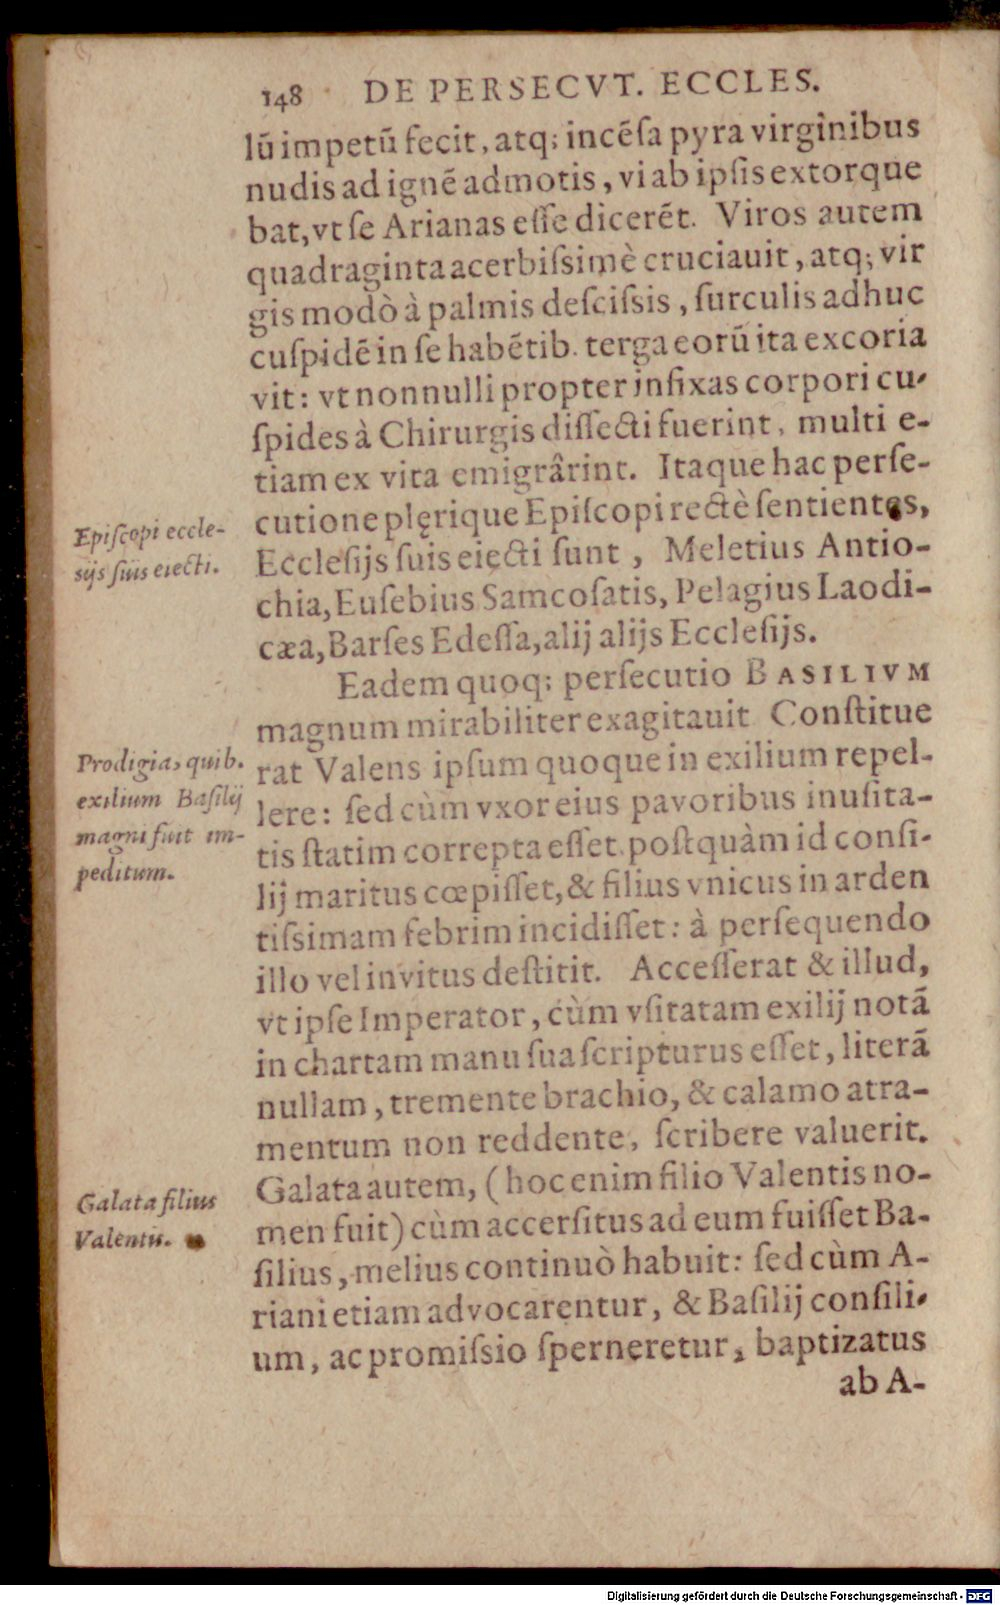 148 DE PERSECVT. ECCLES.
lũ impetũ fecit, atq; incẽſa pyra virginibus
nudis ad ignẽ admotis, vi ab ipſis extorque
bat, vt ſe Arianas eſſe dicerẽt. Viros autem
quadraginta acerbiſsimè cruciauit, atq; vir
gis modò à palmis deſciſsis, ſurculis adhuc
cuſpidẽ in ſe habẽtib. terga eorũ ita excoria
vit: vt nonnulli propter infixas corpori cu-
ſpides à Chirurgis diſſecti fuerint, multi e-
tiam ex vita emigrârint. Itaque hac perſe-
cutione plęrique Epiſcopi rectè ſentientes,
Eccleſijs ſuis eiecti ſunt, Meletius Antio-
chia, Euſebius Samcoſatis, Pelagius Laodi-
cæa, Barſes Edeſſa, alij alijs Eccleſijs.
Epiſcopi eccle-
sijs ſuis eiecti.
Eadem quoq; perſecutio BASILIVM
magnum mirabiliter exagitauit Conſtitue
rat Valens ipſum quoque in exilium repel-
lere: ſed cùm vxor eius pavoribus inuſita-
tis ſtatim correpta eſſet poſtquàm id conſi-
lij maritus cœpiſſet, & filius vnicus in arden
tiſsimam febrim incidiſſet: à perſequendo
illo vel invitus deſtitit. Acceſſerat & illud,
vt ipſe Imperator, cùm vſitatam exilij notã
in chartam manu ſua ſcripturus eſſet, literã
nullam, tremente brachio, & calamo atra-
mentum non reddente, ſcribere valuerit.
Galata autem, (hoc enim filio Valentis no-
men fuit) cùm accerſitus ad eum fuiſſet Ba-
ſilius, melius continuò habuit: ſed cùm A-
riani etiam advocarentur, & Baſilij conſili-
um, ac promiſsio ſperneretur, baptizatus
ab A-
Prodigia, quib.
exilium Baſilij
magni fuit im-
peditum.
Galata filius
Valentis.
Digitalisierung gefördert durch die Deutsche Forschungsgemeinschaft - DFG